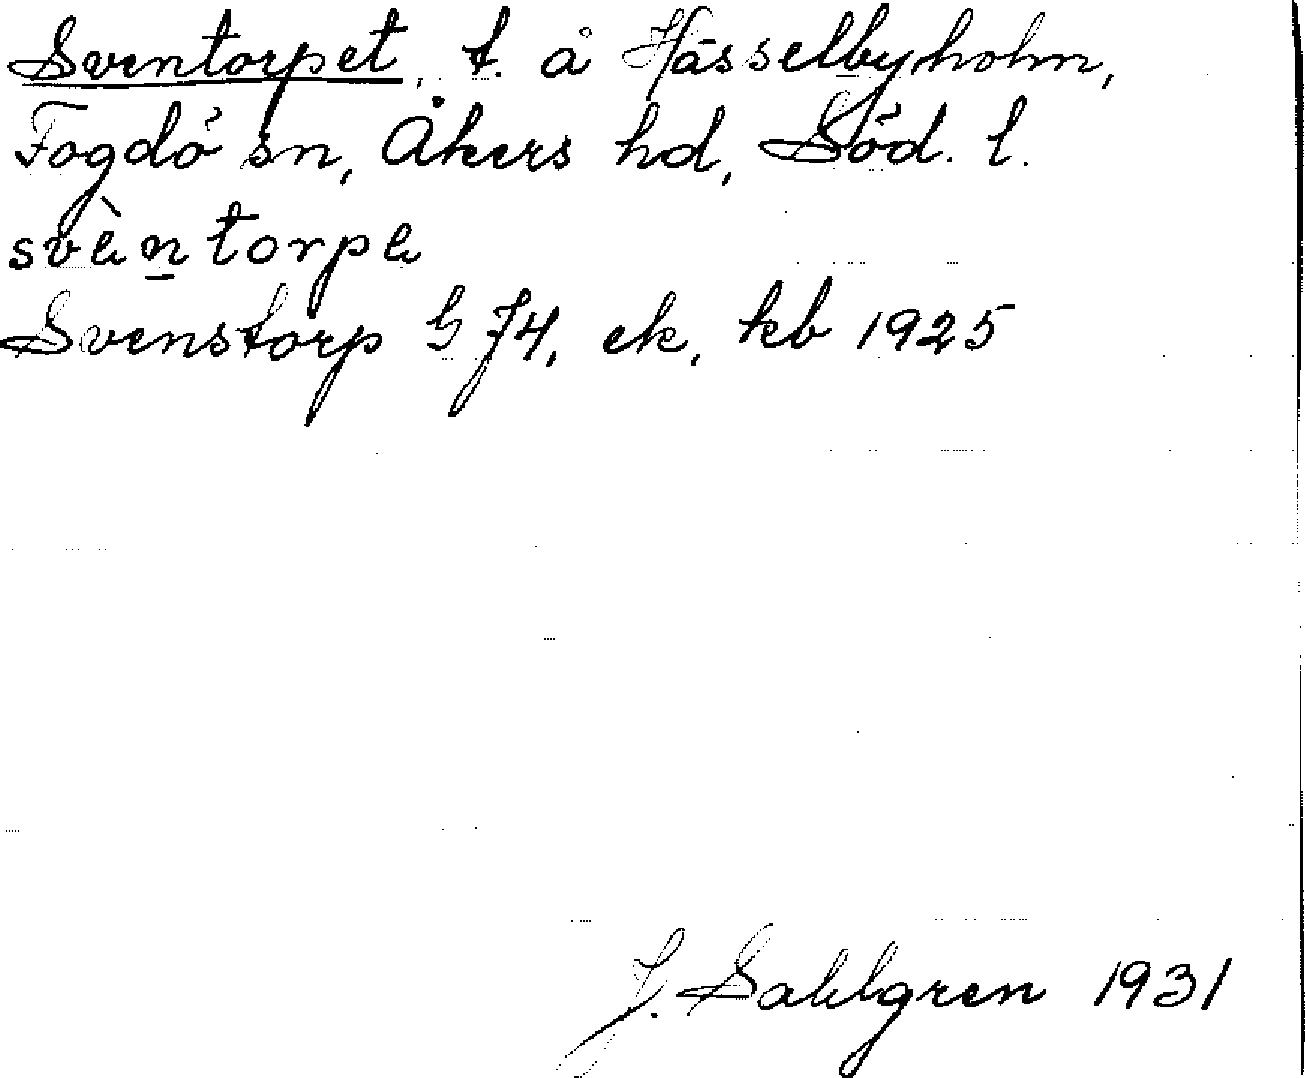 Sventorpet, t. å Hässelbyholm,
Fogdö sn, Åkers hd, Söd. l.
svèn torpe
Svenstorp G J4, ek, kb 1925
J. Sahlgren 1931